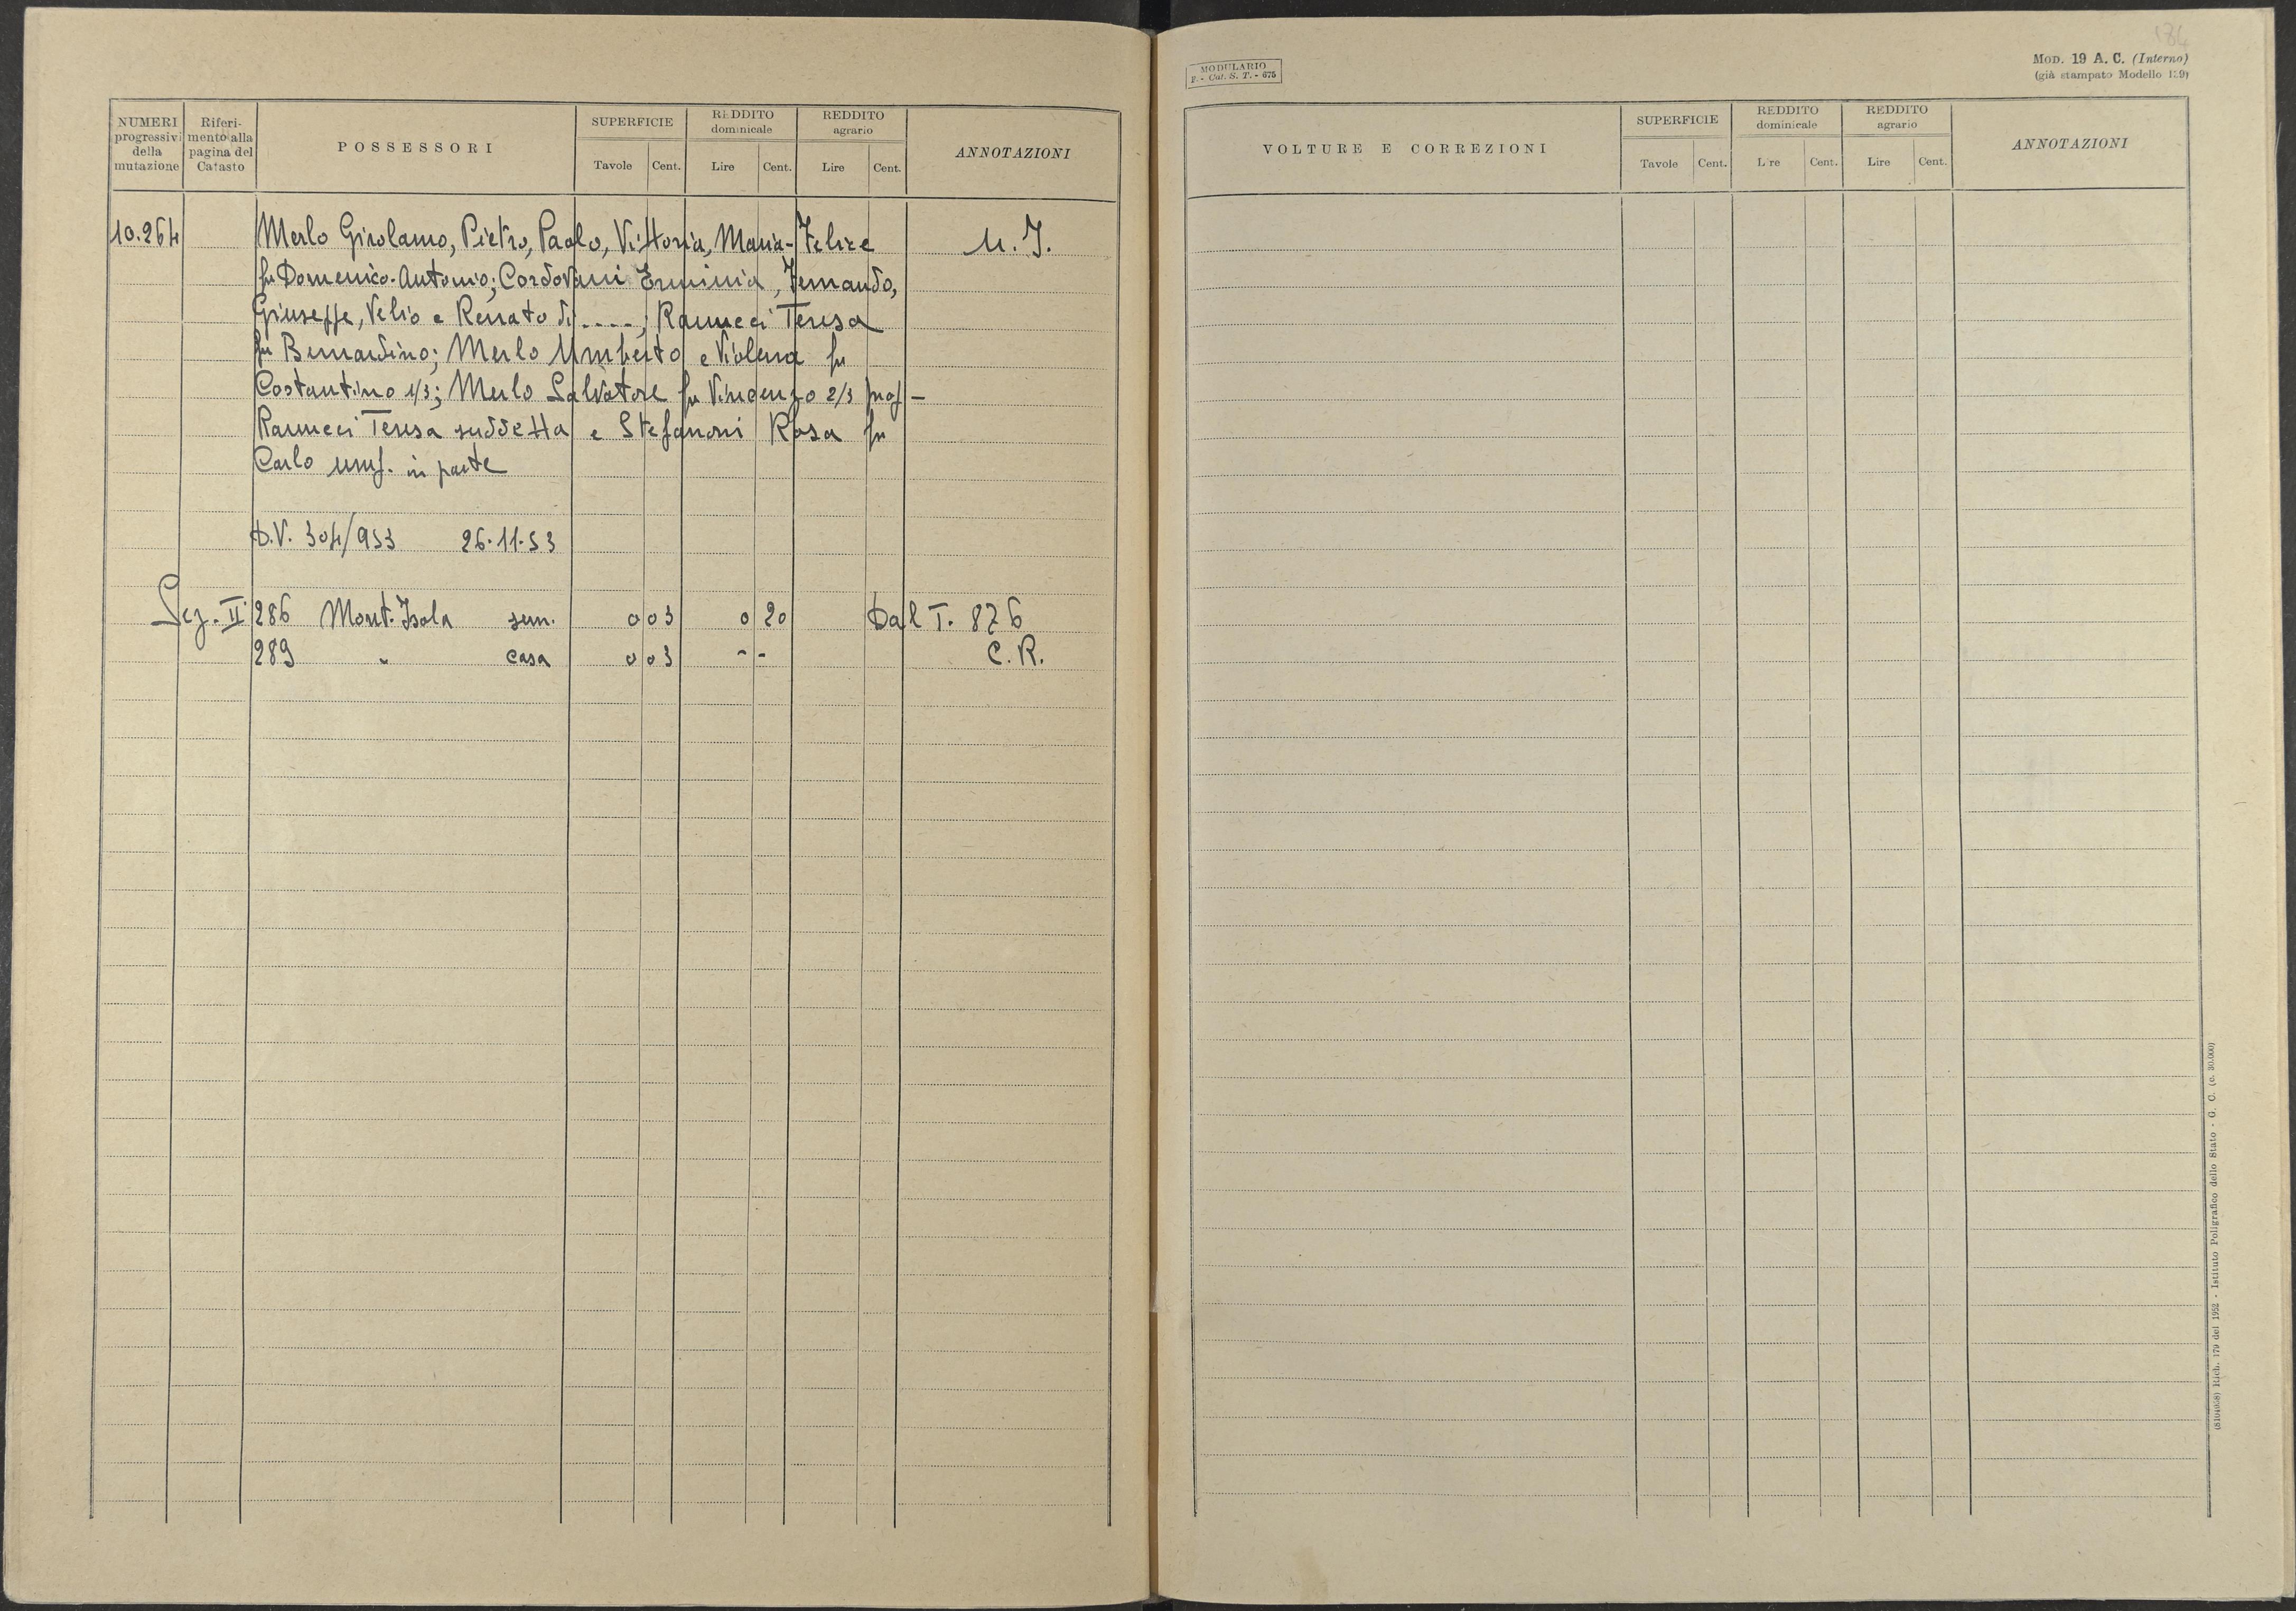 NUMERI progressivi della mutazione
Riferimento alla pagina del Catasto
POSSESSORI
SUPERFICIE
Tavole Cent.
REDDITO dominicale
Lire Cent.
REDDITO agrario
Lire Cent.
ANNOTAZIONI
10.264 Merlo Girolamo, Pietro, Paolo, Vittoria, Maria-Felice M.I.
fu Domenico-Antonio; Cordovani Erminia, Fernando,
Giuseppe, Velio e Renato di ....; Rauneci Teresa
fu Bernardino; Merlo Umberto e Violena fu
Costantino 1/3; Merlo Salvatore fu Vincenzo 2/3 prop-
Rauneci Teresa suddetta e Stefanoni Rosa fu
Carlo usuf. in parte
D.V. 304/953 26.11.53
Sez. II 286 Mont. Isola sem. 0 03 0 20 Dal T. 876
289 " casa 0 03 - - C.R.
184
MODULARIO
F. - Cat. S. T. - 675
MOD. 19 A. C. (Interno)
(già stampato Modello 129)
VOLTURE E CORREZIONI
SUPERFICIE
Tavole Cent.
REDDITO dominicale
Lire Cent.
REDDITO agrario
Lire Cent.
ANNOTAZIONI
Rich. 179 del 1952 - Istituto Poligrafico dello Stato - G. C. (c. 30.000)